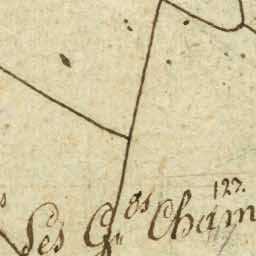 127.
Les G.ds Cham